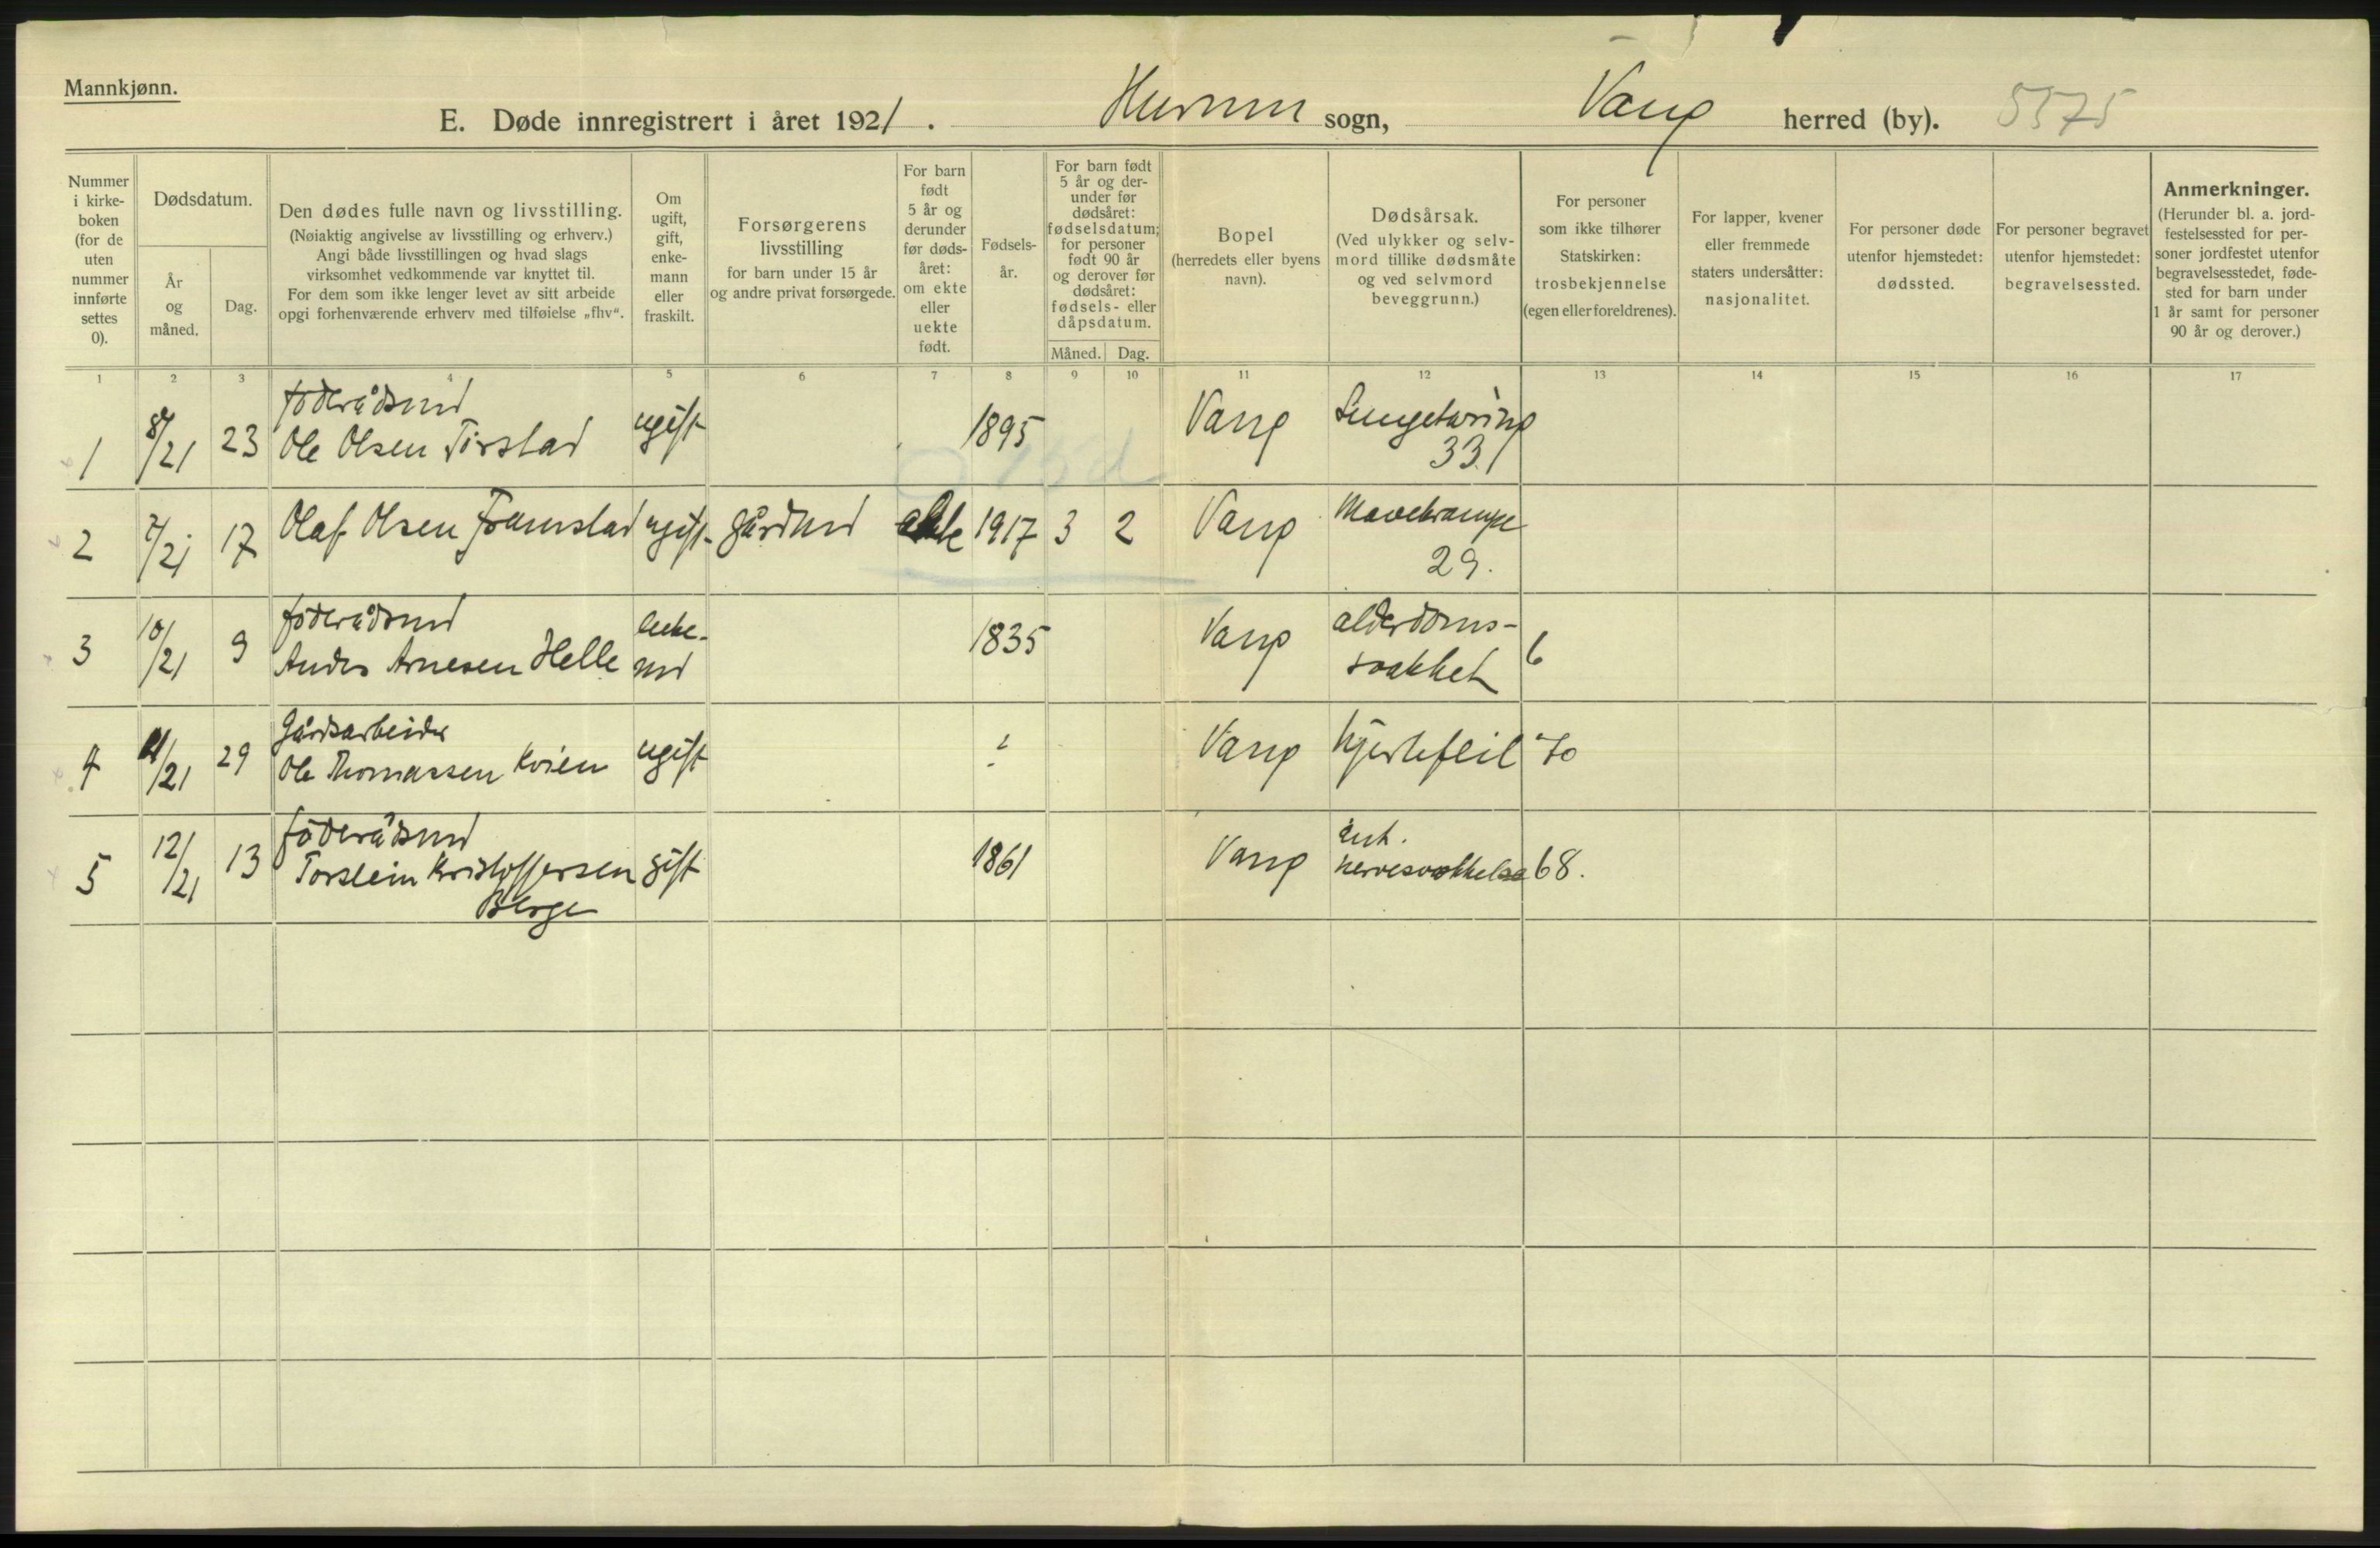 Mannkjønn.
E. Døde innregistrert i året 1921. Hurum sogn, Vang herred (by). 5575
Nummer i kirke- boken (for de uten nummer innførte settes 0).
Dødsdatum.
År og måned.
Dag.
Den dødes fulle navn og livsstilling.
(Nøiaktig angivelse av livsstilling og erhverv.)
Angi både livsstillingen og hvad slags
virksomhet vedkommende var knyttet til.
For dem som ikke lenger levet av sitt arbeide
opgi forhenværende erhverv med tilføielse „fhv“.
Om ugift, gift, enke- mann eller fraskilt.
Forsørgerens
livsstilling
for barn under 15 år
og andre privat forsørgede.
For barn født 5 år og derunder før døds- året: om ekte eller uekte født.
Fødsels- år.
For barn født
5 år og der-
under før
dødsåret:
fødselsdatum;
for personer
født 90 år
og derover før
dødsåret:
fødsels- eller
dåpsdatum.
Måned. Dag.
Bopel
(herredets eller byens
navn).
Dødsårsak.
(Ved ulykker og selv-
mord tillike dødsmåte
og ved selvmord
beveggrunn.)
For personer
som ikke tilhører
Statskirken:
trosbekjennelse
(egen eller foreldrenes).
For lapper, kvener
eller fremmede
staters undersåtter:
nasjonalitet.
For personer døde
utenfor hjemstedet:
dødssted.
For personer begravet
utenfor hjemstedet:
begravelsessted.
Anmerkninger.
(Herunder bl. a. jord-
festelsessted for per-
soner jordfestet utenfor
begravelsesstedet, føde-
sted for barn under
1 år samt for personer
90 år og derover.)
1 2 3 4 5 6 7 8 9 10 11 12 13 14 15 16 17
1 8/21 23 föderådsmd Ole Olsen Törstad ugift 1895 Vang Lungetæring 33
2 /21 17 Olaf Olsen Framstad ugift gårdmd ekte 1917 3 2 Vang Mavekrampe 29.
3 10/21 9 föderådsmd Anders Arnesen Helle enke- md 1835 Vang alderdoms- svakhet 6
4 11/21 29 Gårdsarbeider Ole Thomassen Kvien ugift ? Vang hjertefeil 70
5 12/21 13 föderådsmd Torstein Kristoffersen Berge gift 1861 Vang nervesvekkelse 68.